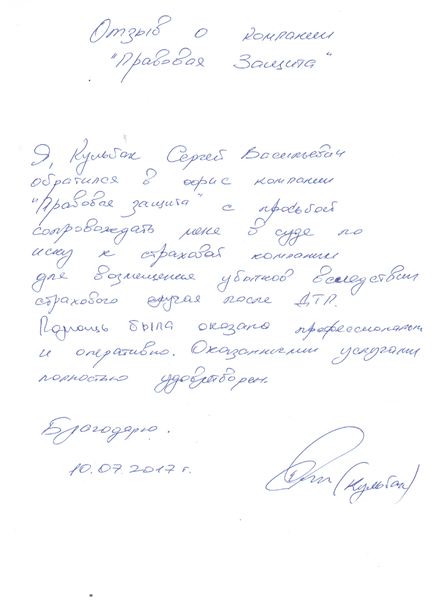 Отзыв о компании
"Правовая Защита"
Я, Кульбак Сергей Васильевич
обратился в офис компании
"Правовая защита" с просьбой
сопровождать меня в суде по
иску к страховой компании
для возмещения убытков вследствии
страхового случая после ДТП.
Помощь была оказана профессионально
и оперативно. Оказанными услугами
полностью удовлетворен.
Благодарю.
10.07.2017 г.
(Кульбак)